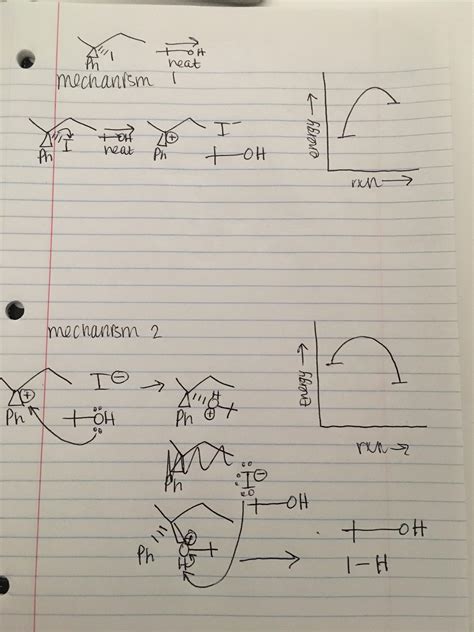 I OH
Ph heat
mechanism 1
I OH ⊕ I⁻
Ph heat Ph OH
energy →
rxn →
mechanism 2
⊕ I⊖ → H
Ph :OH Ph O ⊕
energy →
rxn 2
Ph :I:⊖
OH
Ph ⊕ O H → OH
I-H